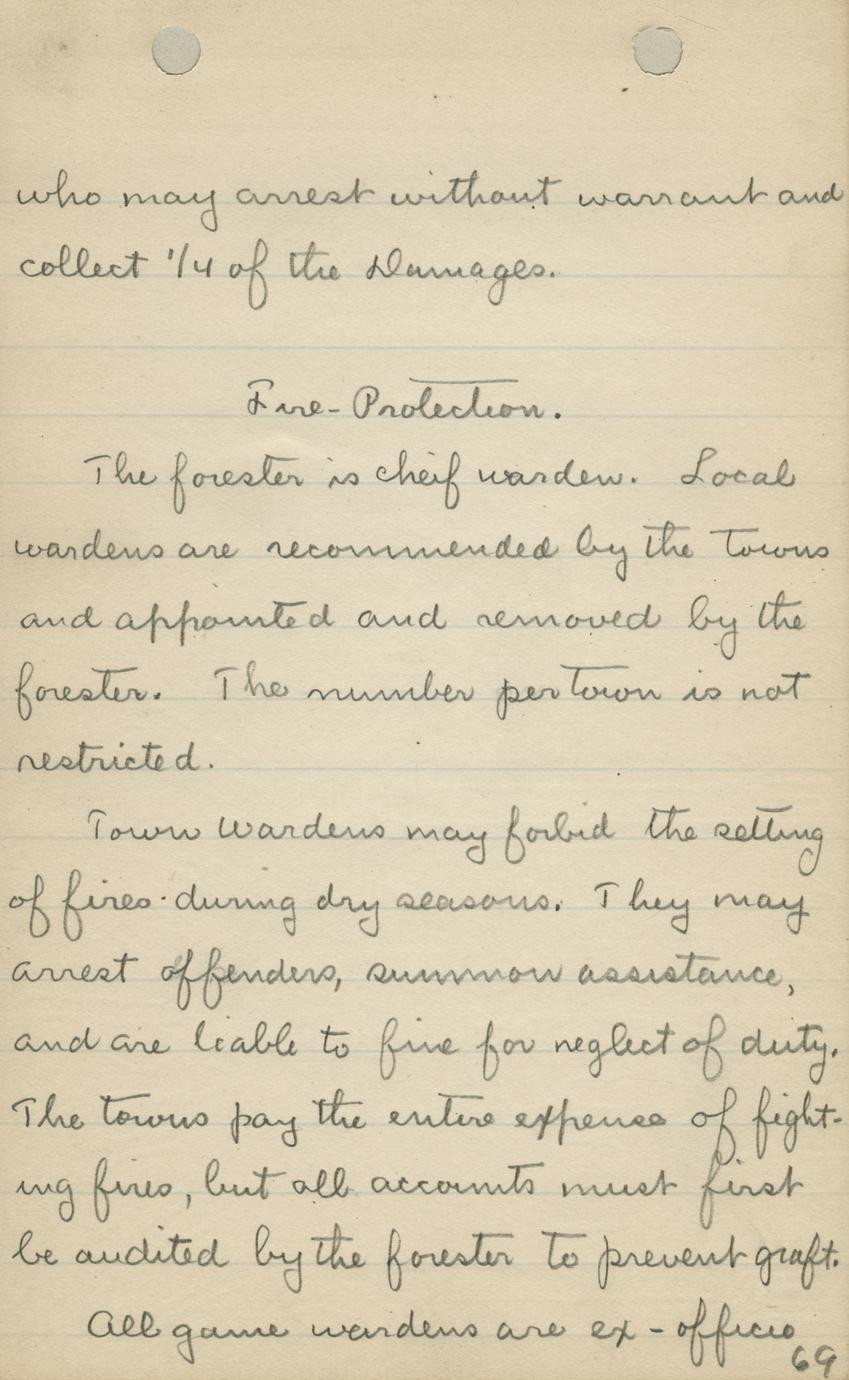 who may arrest without warrant and
collect 1/4 of the Damages.
Fire-Protection.
The forester is cheif warden. Local
wardens are recommended by the towns
and appointed and removed by the
forester. The number per town is not
restricted.
Town wardens may forbid the setting
of fires during dry seasons. They may
arrest offenders, summon assistance,
and are liable to fine for neglect of duty.
The towns pay the entire expense of fight-
ing fires, but all accounts must first
be audited by the forester to prevent graft.
All game wardens are ex-officio
69